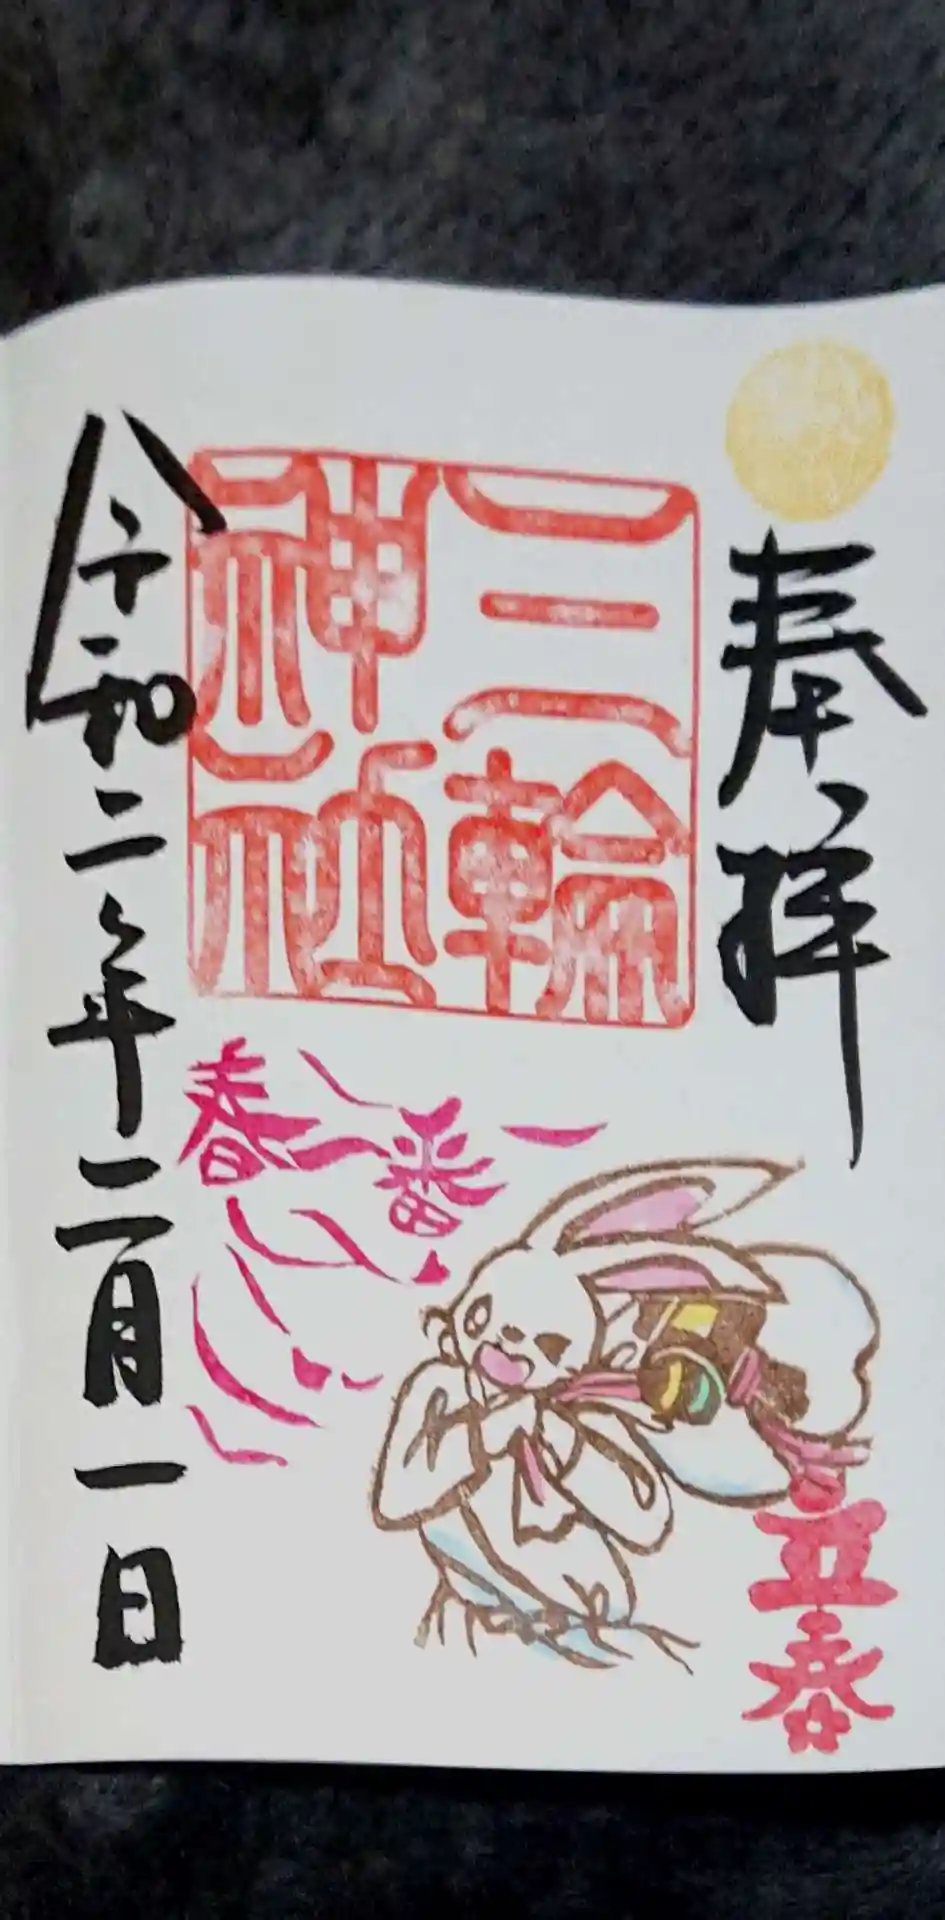 奉拝
三輪
神社
立春
春一番
令和二年二月一日